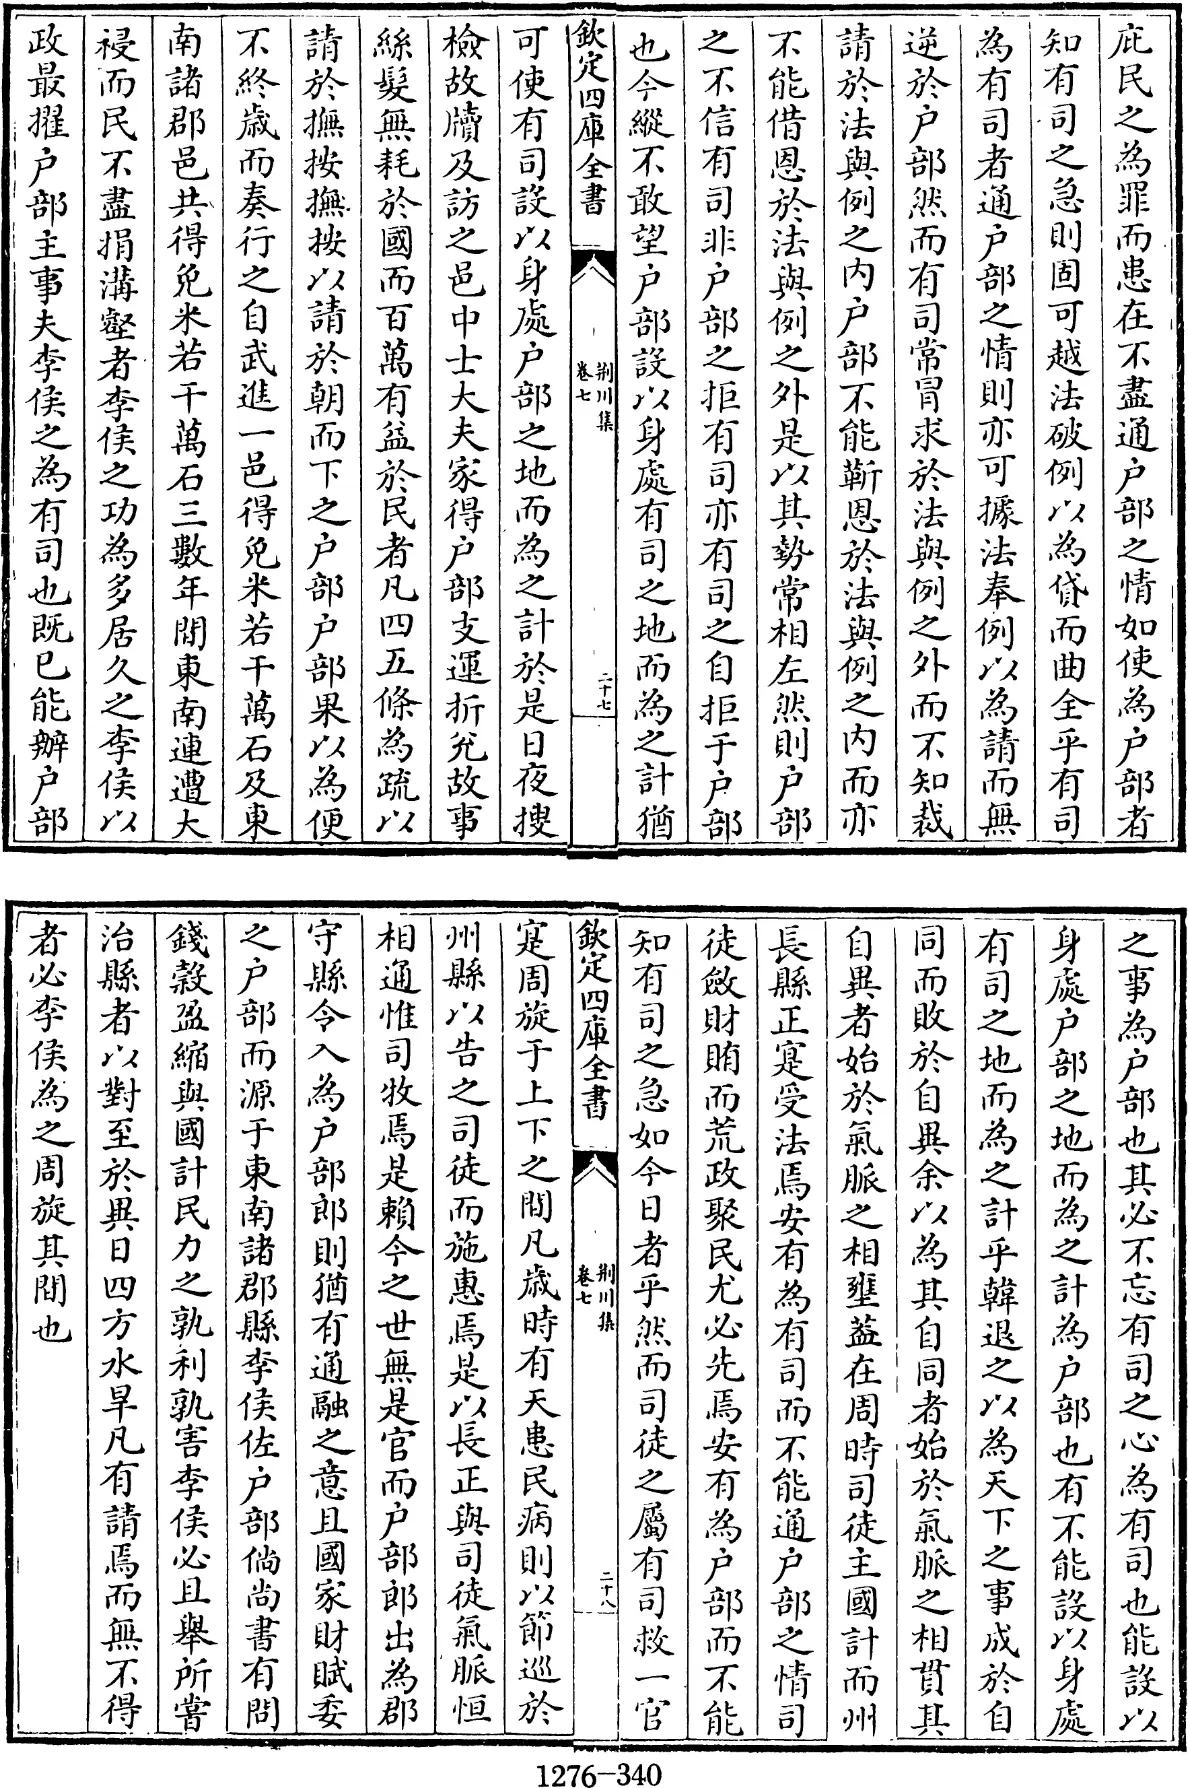 庇民之為罪而患在不盡通户部之情如使為户部者
知有司之急則固可越法破例以為貸而曲全乎有司
為有司者通户部之情則亦可據法奉例以為請而無
逆於户部然而有司常冒求於法與例之外而不知裁
請於法與例之内户部不能靳恩於法與例之内而亦
不能借恩於法與例之外是以其勢常相左然則户部
之不信有司非户部之拒有司亦有司之自拒于户部
也今縱不敢望户部設以身處有司之地而為之計猶
欽定四庫全書
荆川集
卷七
二十七
可使有司設以身處户部之地而為之計於是日夜搜
檢故牘及訪之邑中士大夫家得户部支運折兊故事
絲髮無耗於國而百萬有益於民者凡四五條為疏以
請於撫按撫按以請於朝而下之户部户部果以為便
不終歲而奏行之自武進一邑得免米若干萬石及東
南諸郡邑共得免米若干萬石三數年間東南連遭大
祲而民不盡捐溝壑者李侯之功為多居久之李侯以
政最擢户部主事夫李侯之為有司也既已能辦户部
之事為户部也其必不忘有司之心為有司也能設以
身處户部之地而為之計為户部也有不能設以身處
有司之地而為之計乎韓退之以為天下之事成於自
同而敗於自異余以為其自同者始於氣脈之相貫其
自異者始於氣脈之相壅葢在周時司徒主國計而州
長縣正寔受法焉安有為有司而不能通户部之情司
徒斂財賄而荒政聚民尤必先焉安有為户部而不能
知有司之急如今日者乎然而司徒之屬有司救一官
欽定四庫全書
荆川集
卷七
二十八
寔周旋于上下之間凡歲時有天患民病則以節巡於
州縣以告之司徒而施惠焉是以長正與司徒氣脈恒
相通惟司牧焉是賴今之世無是官而户部郎出為郡
守縣令入為户部郎則猶有通融之意且國家財賦委
之户部而源于東南諸郡縣李侯佐户部倘尚書有問
錢穀盈縮與國計民力之孰利孰害李侯必且舉所嘗
治縣者以對至於異日四方水旱凡有請焉而無不得
者必李侯為之周旋其間也
1276-340